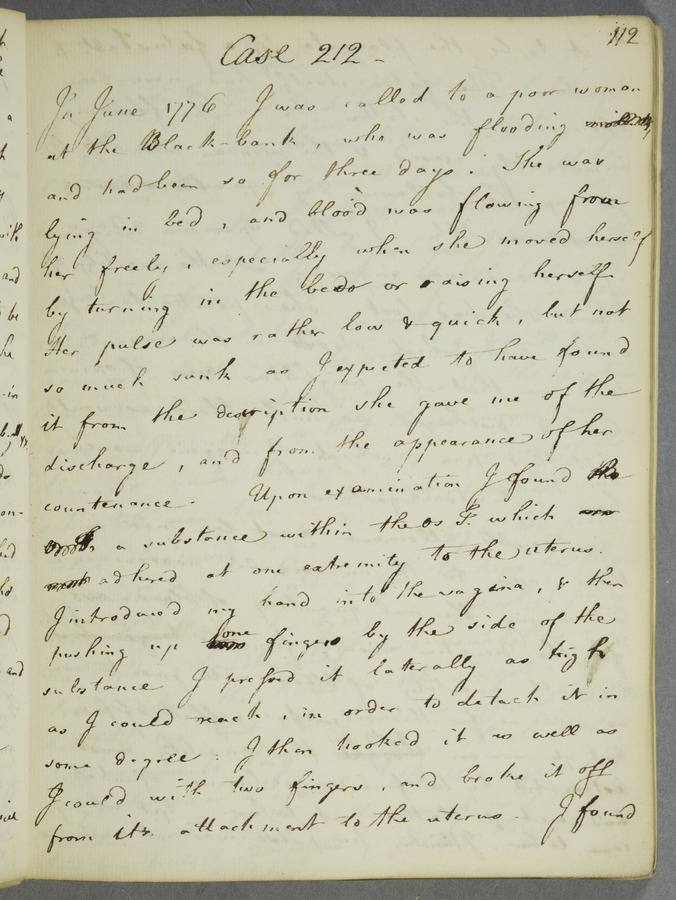 112
Case 212 -
In June 1776 I was called to a poor woman
at the Black-bank, who was flooding
and had been so for three days. She was
lying in bed, and blood was flowing from
her freely, especially when she moved herself
by turning in the bed or raising herself
Her pulse was rather low & quick, but not
so much sunk as I expected to have found
it from the description she gave me of the
discharge, and from the appearance of her
countenance. Upon examination I found
a substance within the os T. which
adhered at one extremity to the uterus.
I introduced my hand into the vagina, & then
pushing up some fingers by the side of the
substance I pressed it laterally as high
as I could reach, in order to detach it in
some degree: I then hooked it as well as
I could with two fingers, and broke it off
from its attachment to the uterus. I found